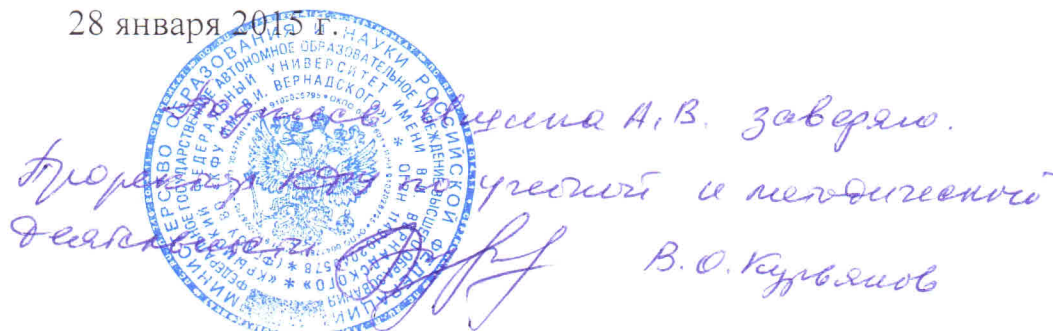 28 января 2015 г.
Подпись А.В. заверяю.
Проректор КФУ по учебной и методической
деятельности
В.О. Курьянов
МИНИСТЕРСТВО ОБРАЗОВАНИЯ И НАУКИ РОССИЙСКОЙ ФЕДЕРАЦИИ
ФЕДЕРАЛЬНОЕ ГОСУДАРСТВЕННОЕ АВТОНОМНОЕ ОБРАЗОВАТЕЛЬНОЕ УЧРЕЖДЕНИЕ ВЫСШЕГО ОБРАЗОВАНИЯ
«КРЫМСКИЙ ФЕДЕРАЛЬНЫЙ УНИВЕРСИТЕТ ИМЕНИ В.И. ВЕРНАДСКОГО»